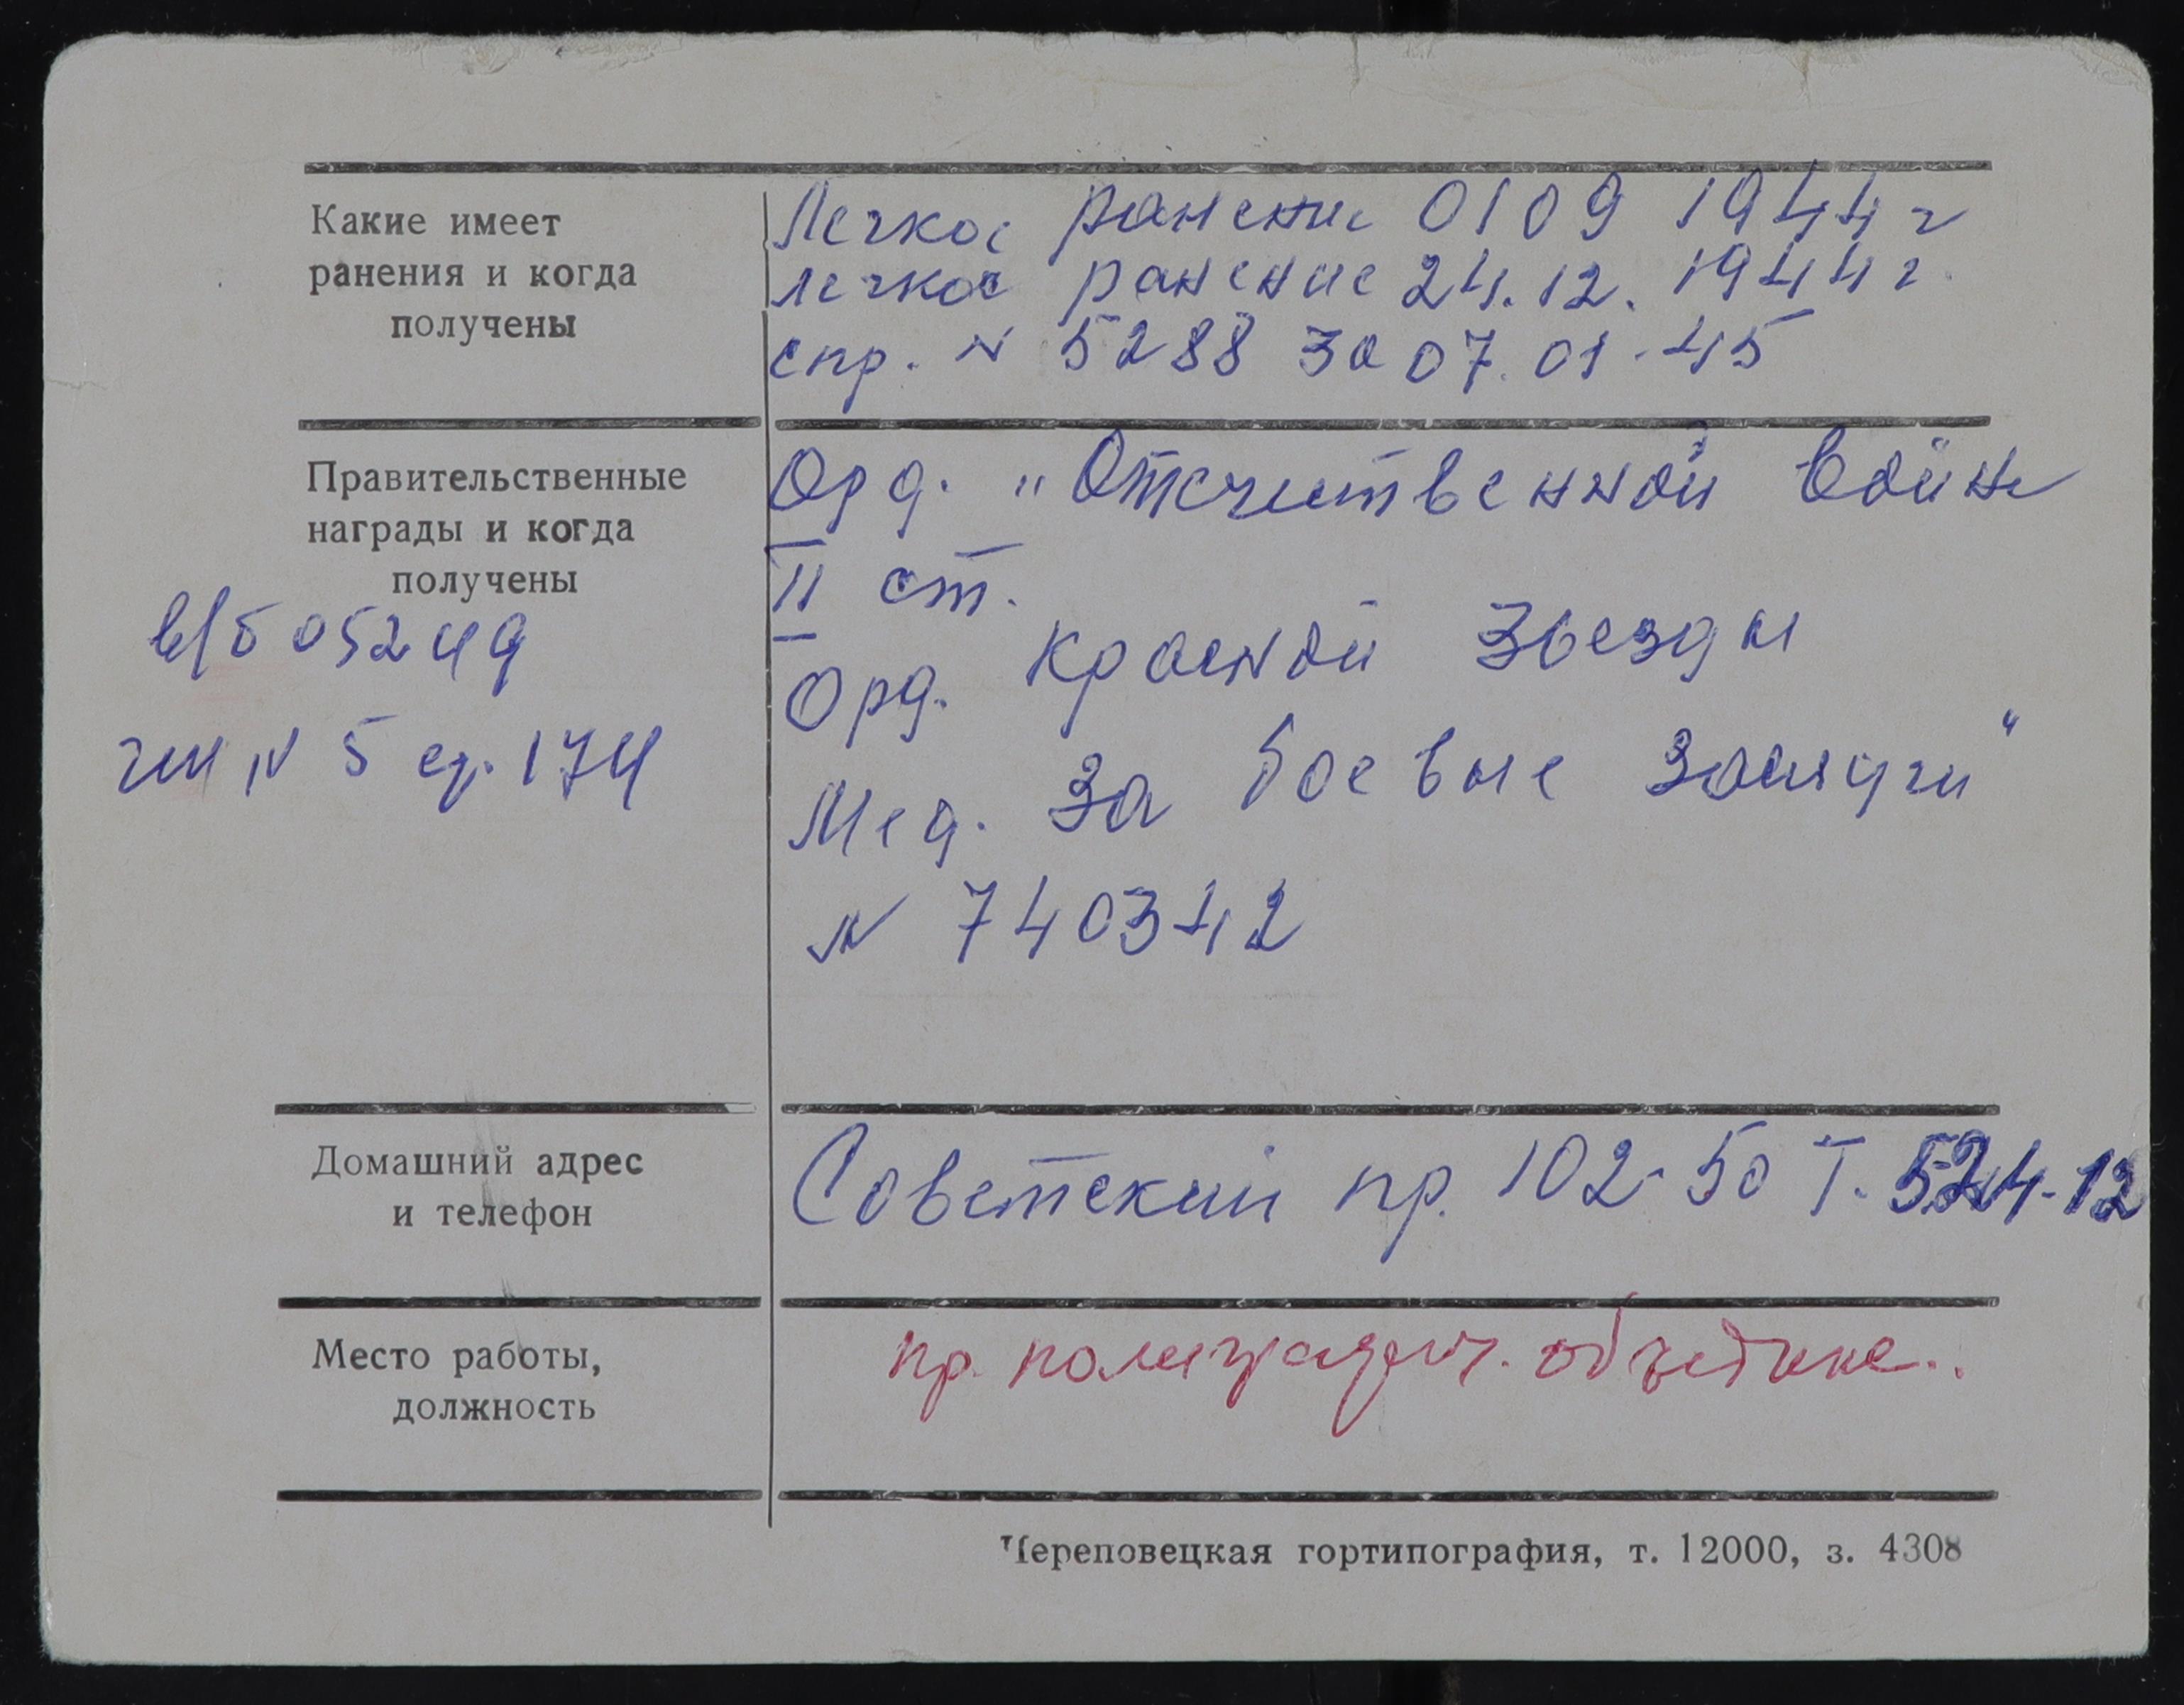 Какие имеет
ранения и когда
получены
Легкое ранение 01 09 1944 г
легкое ранение 24.12.1944 г.
спр. N 5288 за 07.01.45
Правительственные
награды и когда
получены
Орд. "Отечественной войны
II ст.
Орд. Красной Звезды
Мед. За боевые заслуги"
N 740342
в/б 05249
N 5 174
Домашний адрес
и телефон
Советский пр. 102-50 Т.
Место работы,
должность
пр. полиграфич. объедине..
Череповецкая гортипография, т. 12000, з. 4308